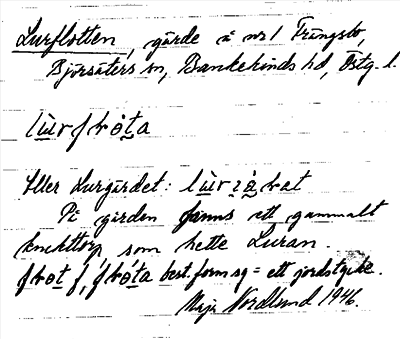 Lurflotten, gärde å nr 1 Frängsbo,
Björsäters sn, Bankekinds hd, Östg. l.
Eller Lurgärdet:
På gården fanns ett gammalt
knekttorp som hette Luran.
best. form sg = ett jordstycke.
Maja Nordlund 1946.